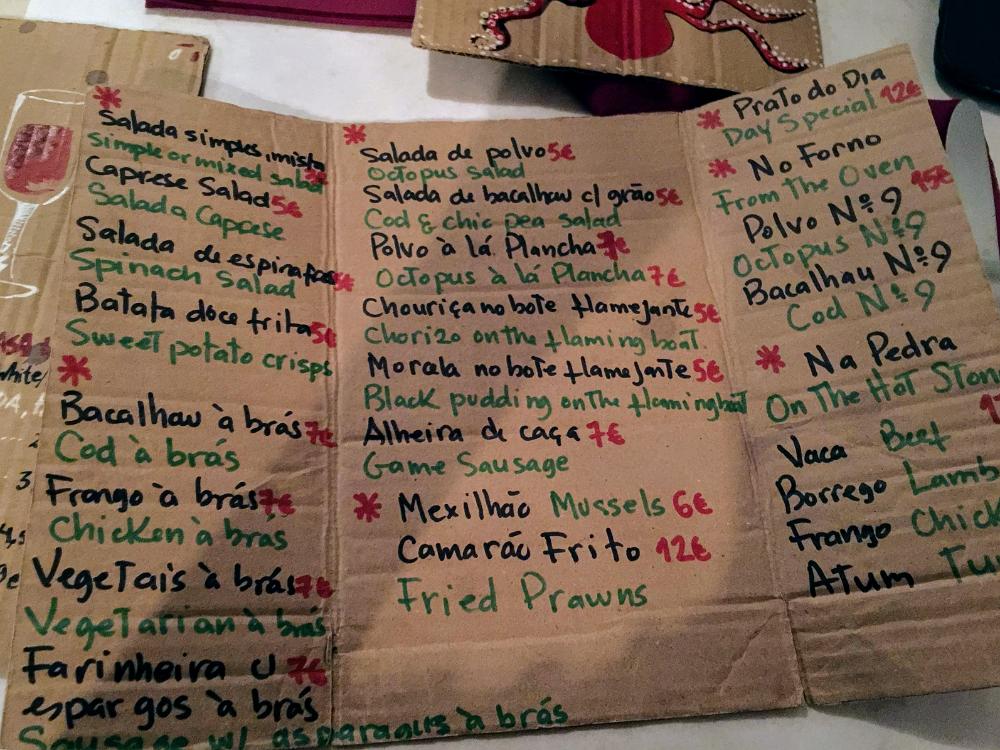 Salada simples, mista
Simple or mixed salad
Caprese Salad 5€
Salada Caprese
Salada de espinafres
Spinach Salad
Batata doce frita 5€
Sweet potato crisps
Bacalhau à brás 7€
Cod à brás
Frango à brás 7€
Chicken à brás
Vegetais à brás 7€
Vegetarian à brás
Farinheira c/ 7€
espargos à brás
Sausage w/ asparagus à brás
Salada de polvo 5€
Octopus Salad
Salada de bacalhau c/ grão 5€
Cod & chic pea salad
Polvo à lá Plancha 7€
Octopus à lá Plancha 7€
Chouriça no bote flamejante 5€
Chorizo on the flaming boat.
Morcela no bote flamejante 5€
Black pudding on the flaming boat
Alheira de caça 7€
Game Sausage
Mexilhão Mussels 6€
Camarão Frito 12€
Fried Prawns
Prato do Dia
Day Special 12€
No Forno
From The Oven 15€
Polvo Nº9
Octopus Nº9
Bacalhau Nº9
Cod Nº9
Na Pedra
On The Hot Ston
Vaca Beef
Borrego Lamb
Frango Chick
Atum Tu